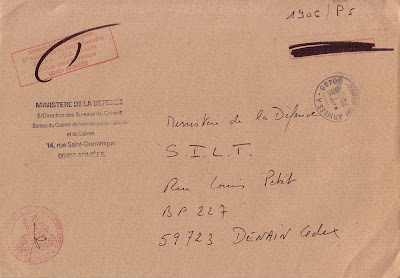 1906/P5
MINISTERE DE LA DEFENSE
S/Direction des Bureaux du Cabinet
Bureau du Courrier de l'Administration Générale
et du Cabinet
14, rue Saint-Dominique
00450 ARMÉES
Ministère de la Défense
S.I.L.T.
Rue Louis Petit
BP 227
59723 DENAIN Cedex